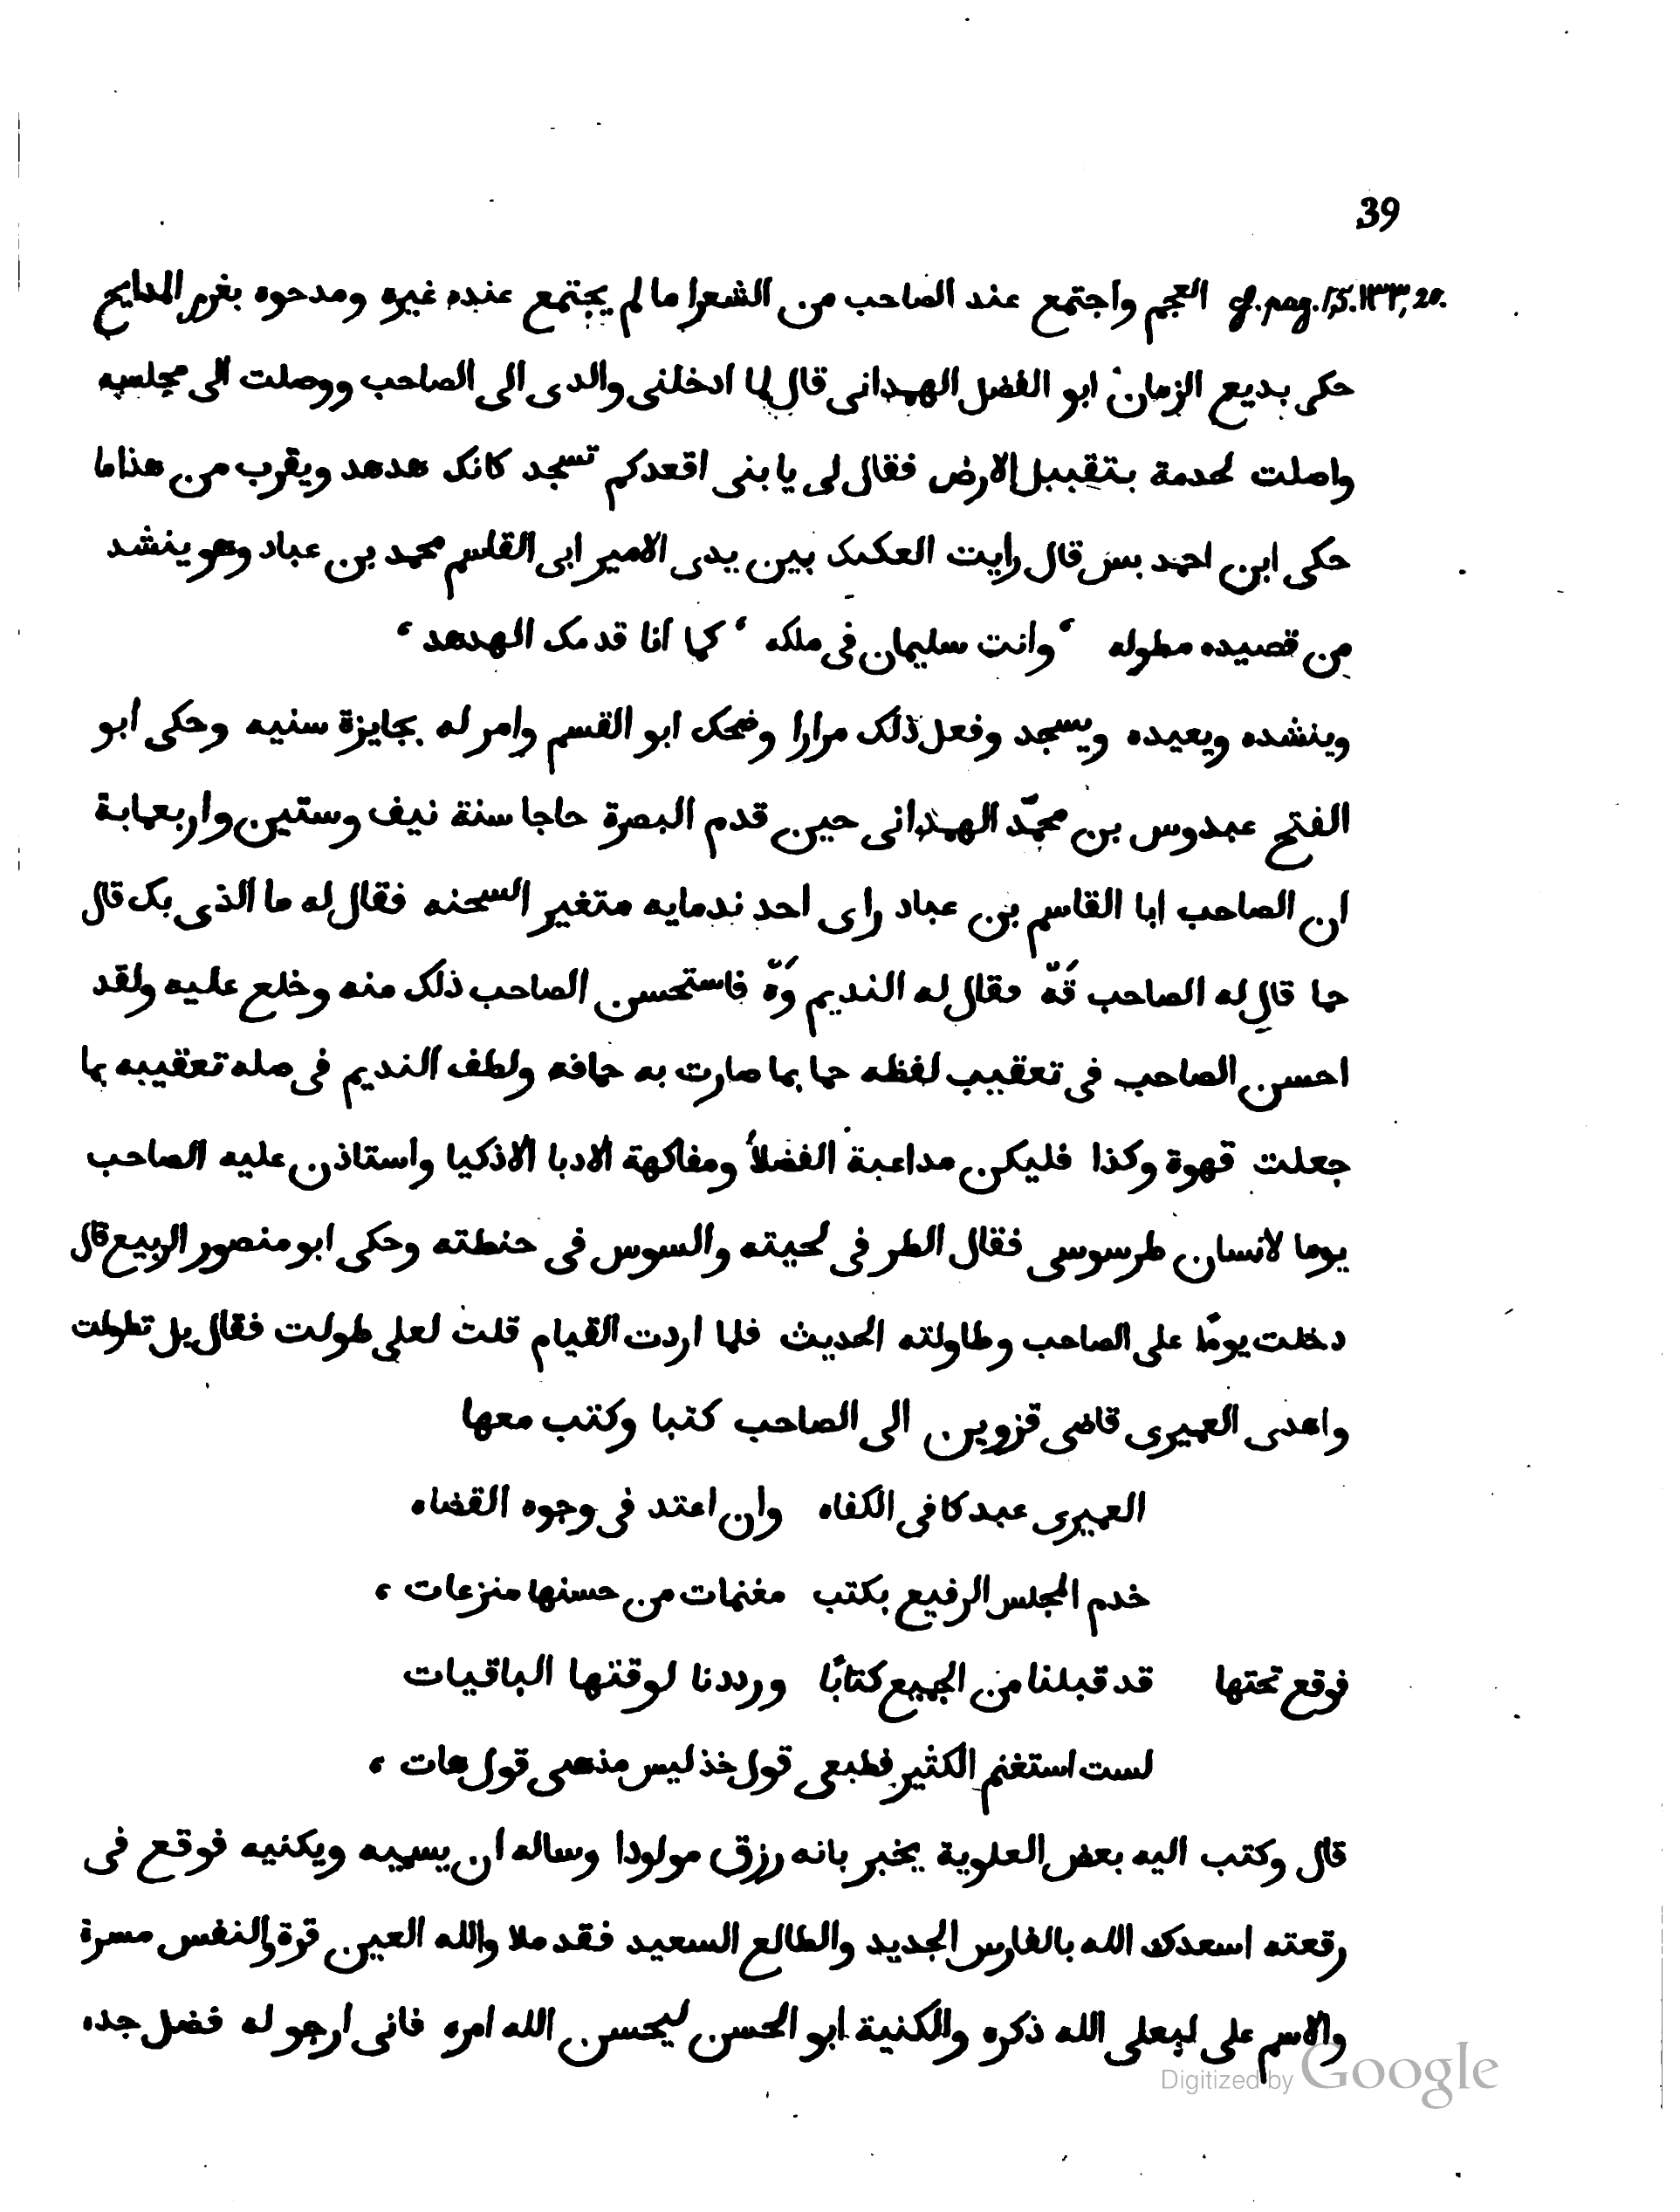 39
cf. pag. ١٣٣, 20. العجم واجتمع عند الصاحب من الشعرا ما لم يجتمع عنده غيره ومدحوه بغرر المدايح
حكى بديع الزمان ابو الفضل الهمدانى قال لما ادخلنى والدى الى الصاحب ووصلت الى مجلسه
واصلت لخدمة بتقبيل الارض فقال لى يا بنى اقعدكم تسجد كانك هدهد ويقرب من هذا ما
حكى ابن احمد بس قال رايت العكبك بين يدى الامير ابى القاسم محمد بن عباد وهو ينشد
من قصيده مطوله ‘ وانت سليمان فى ملكه ‘ كما انا قدمك الهدهد ‘
وينشده ويعيده ويسجد وفعل ذلك مرارا وضحك ابو القسم وامر له بجايزة سنيه وحكى ابو
الفتح عبدوس بن محمّد الهمذانى حين قدم البصرة حاجا سنة نيف وستين واربعماية
ان الصاحب ابا القاسم بن عباد راى احد ندمايه متغير السحنه فقال له ما الذى بك قال
حما قال له الصاحب قَهّ فقال له النديم وَهّ فاستحسن الصاحب ذلك منه وخلع عليه ولقد
احسن الصاحب فى تعقيب لفظه حما بما صارت به حماقه ولطف النديم فى صله تعقيبه بما
جعلت قهوة وكذا فليكن مداعبة الفضلأ ومفاكهة الادبا الاذكيا واستاذن عليه الصاحب
يوما لانسان طرسوسى فقال الطر فى لحيته والسوس فى حنطته وحكى ابو منصور الربيع قال
دخلت يومًا على الصاحب وطاولته الحديث فلما اردت القيام قلت لعلى طولت فقال بل تطولت
واهدى العميرى قاضى قزوين الى الصاحب كتبا وكتب معها
العميرى عبد كافى الكفاه وان اعتد فى وجوه القضاه
خدم المجلس الرفيع بكتب مغنمات من حسنها منزعات ،
فوقع تحتها قد قبلنا من الجميع كتابًا ورددنا لوقتها الباقيات
لست استغنم الكثير فطبعى قول خذ ليس مذهبى قول هات ،
قال وكتب اليه بعض العلوية يخبر بانه رزق مولودا وساله ان يسميه ويكنيه فوقع فى
رقعته اسعدك الله بالفارس الجديد والطالع السعيد فقد ملا والله العين قرة والنفس مسرة
والاسم على ليعلى الله ذكره والكنية ابو الحسن ليحسن الله امره فانى ارجو له فضل جده
Digitized by Google